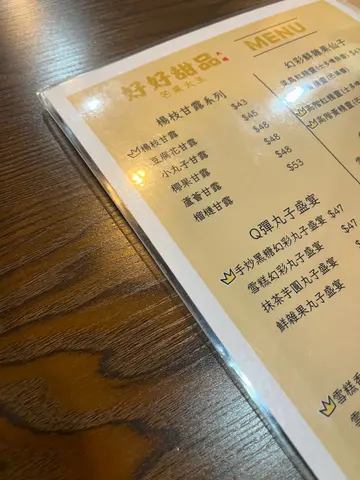 好好甜品
芒果大王
MENU
楊枝甘露系列
楊枝甘露 $43
豆腐花甘露 $48
小丸子甘露 $48
椰果甘露 $48
蘆薈甘露 $48
榴槤甘露 $53
Q彈丸子盛宴
手炒黑糖幻彩丸子盛宴 $47
雪糕幻彩丸子盛宴 $47
抹茶芋圓丸子盛宴
鮮雜果丸子盛宴
幻彩鮮雜果仙子
雪糕